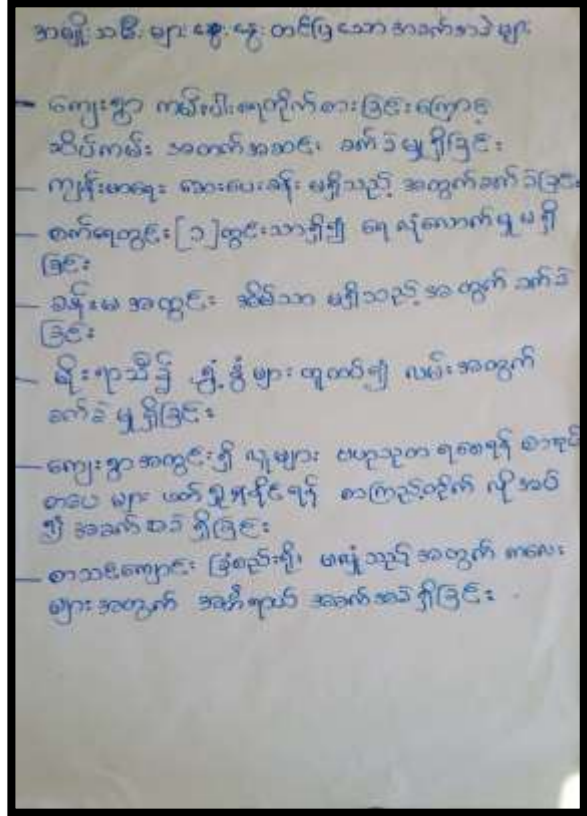 အမျိုးသမီးများ ဆွေးနွေး တင်ပြသော အခက်အခဲများ
– ကျေးရွာ ကမ်းပါးရေတိုက်စားခြင်းကြောင့်
ဆိပ်ကမ်း အတက်အဆင်း ခက်ခဲမှုရှိခြင်း
– ကျန်းမာရေး ဆေးပေးခန်း မရှိသည့် အတွက်ခက်ခဲခြင်း
– စက်ရေတွင်း [၁]တွင်းသာရှိ၍ ရေ လုံလောက်မှု မရှိ
ခြင်း
– ခန်းမ အတွင်း အိမ်သာ မရှိသည့်အတွက် ခက်ခဲ
ခြင်း
– မိုးရာသီ၌ ရွှံ့နွံများ ထူထပ်၍ လမ်းအတွက်
ခက်ခဲမှုရှိခြင်း
– ကျေးရွာအတွင်းရှိ လူများ ဗဟုသုတ ရစေရန် စာအုပ်
စာပေ များ ဖတ်ရှုနိုင်ရန် စာကြည့်တိုက် လိုအပ်
၍ အခက်အခဲ ရှိခြင်း
– စာသင်ကျောင်း ခြံစည်းရိုး မလုံသည့် အတွက် ကလေး
များအတွက် အန္တရာယ် အခက်အခဲရှိခြင်း